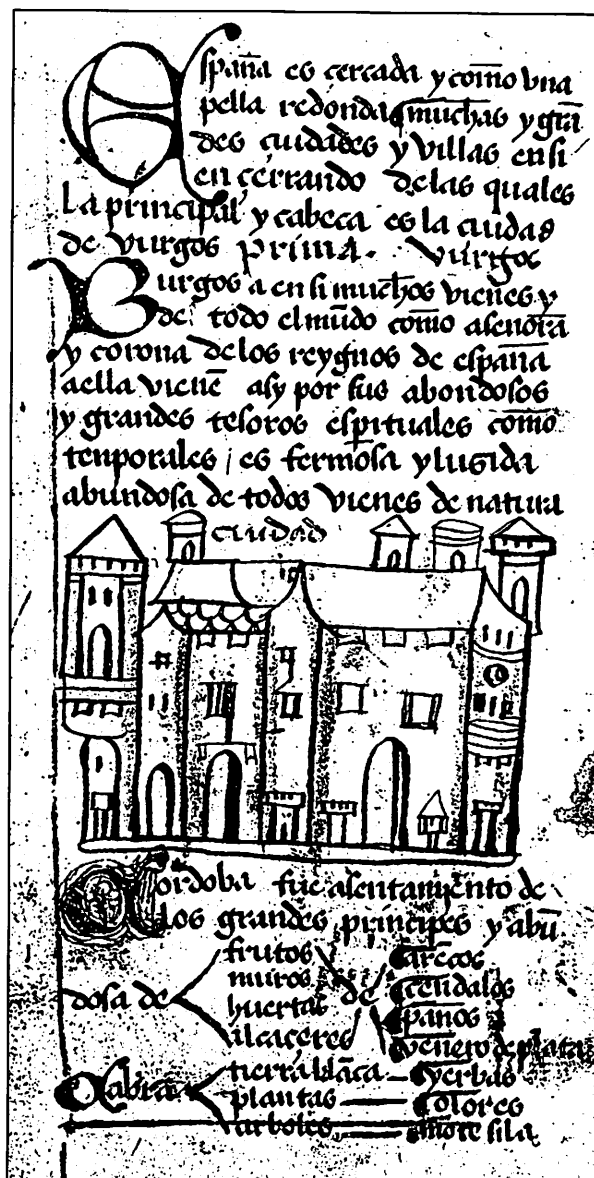 España es cercada y como vna
pella redonda muchas y grā
des ciudades y villas en si
en çerrando de las quales
La principal y cabeca es la ciudad
de vurgos prima. vurgos
Burgos a en si muchos vienes y
de todo el mūdo como asenora
y corona de los reygnos de españa
aella vienē asy por sus abondosos
y grandes tesoros esprituales como
tenporales / es fermosa y lusida
abundosa de todos vienes de natura
ciudad
Cordoba fue asentamyento de
los grandes principes y abū
dosa de
frutos
muros
huertas
alcaceres
de
arēcos
cendalos
panos
venero de plata
Cabra
tierra blāca - yerbas
plantas - olores
arboles